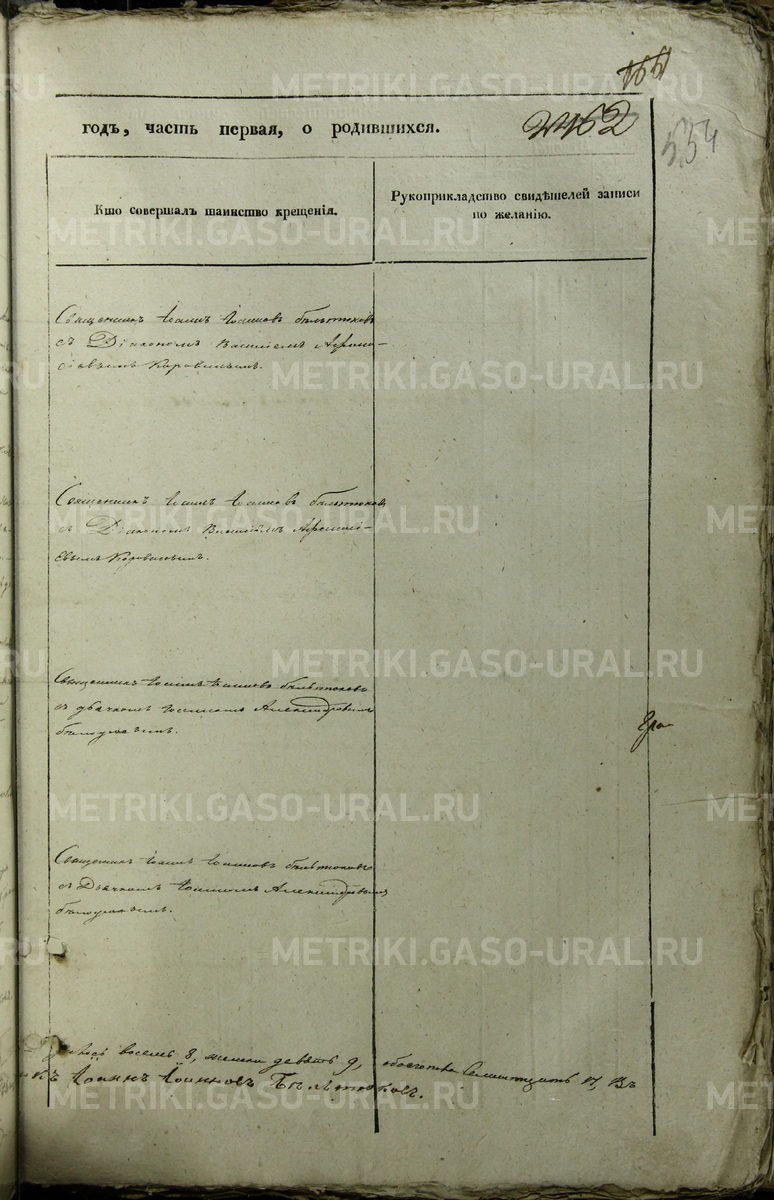 166
годъ, часть первая, о родившихся.
462
554
Кто совершалъ таинство крещенія.
Рукоприкладство свидѣтелей записи
по желанію.
Священникъ Іоаннъ Іоанновъ Бѣлтюковъ
съ Діакономъ Василіемъ Афона-
сіевымъ Коровинымъ.
Священникъ Іоаннъ Іоанновъ Бѣлтюковъ
съ Діакономъ Василіемъ Афонасі-
евымъ
Священникъ Іоаннъ Іоанновъ Бѣлтюковъ
съ дьячкомъ Іоанномъ Александровымъ
Священникъ Іоаннъ Іоанновъ Бѣлтюковъ
съ Дьячкомъ Іоанномъ Александровымъ
восемь 8, женска девять 9, обоего пола семнатцать 17, Въ
къ Іоаннъ Іоанновъ Бѣлтюковъ.
METRIKI.GASO-URAL.RU